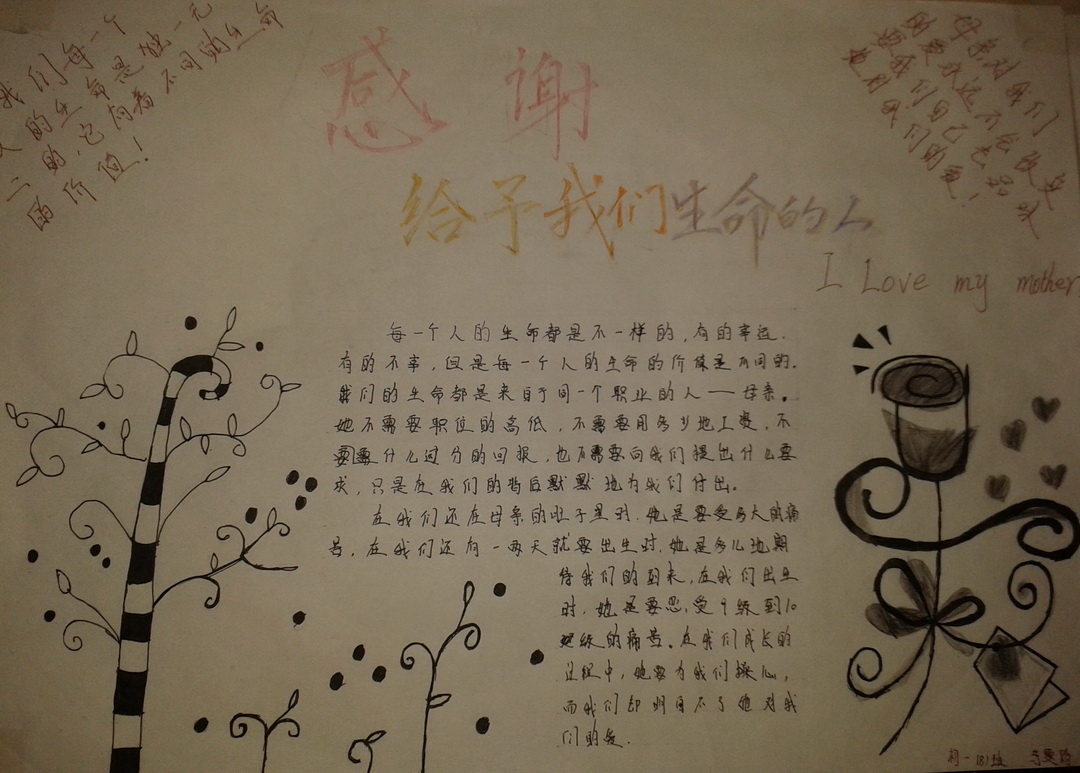 我们每一个
人的生命是独一无
二的，它有着不同的生命
的价值！
感谢
给予我们生命的人
母亲对我们
的爱永远不会改变
要我们自己去面对
她对我们的爱！
I Love my mother
每一个人的生命都是不一样的，有的幸运，
有的不幸，但是每一个人的生命的价值是不同的。
我们的生命都是来自于同一个职业的人——母亲。
她不需要职位的高低，不需要用多少地工资，不
需要什么过分的回报，也不需要向我们提出什么要
求，只是在我们的背后默默地为我们付出。
在我们还在母亲的肚子里时，她是要受多大的痛
苦，在我们还有一两天就要出生时，她是多么地期
待我们的到来，在我们出生
时，她是要忍受9级到10
级的痛苦。在我们成长的
过程中，她要为我们操心，
而我们却明白不了她对我
们的爱。
初一181班